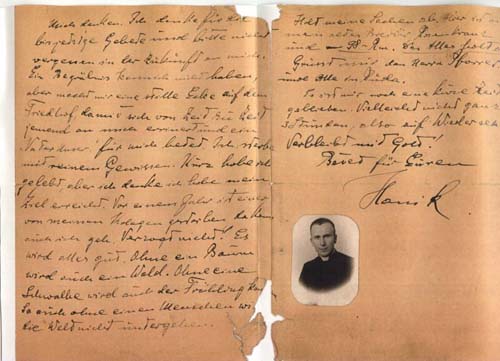 Euch danken. Ich danke für das
bisjetzige Gebete und bitte nicht
vergessen in der Zukunft an mich.
Ein Begräbnis kann ich nicht haben,
aber macht mir eine stille Ecke auf dem
Friedhof, damit sich von Zeit zu Zeit
jemand an mich erinnert und ein
Vater unser für mich betet. Ich sterbe
mit reinem Gewissen. Kurz habe ich
gelebt, aber ich denke ich habe mein
Ziel erreicht. Vor einem Jahr ist einer
von meinen gestorben
auch ich geh. Verzagt nicht! Es
wird alles gut. Ohne ein Baum
wird auch ein Wald. Ohne eine
Schwalbe wird auch der Frühling
So auch ohne einen Menschen wi
die Welt nicht untergehen.
Holt meine Sachen ab. Hier ist
mein altes Brevier Rosenkranz
und 98 Rm. Das Alles holt
Grüsst mir den Herrn Pfarrer
und Alle
Es ist mir noch eine kurze Zeit
geblieben. Vielleicht nicht ganz
Stunden, also auf Wiederseh
Verbleibt mit Gott!
Betet für Euren
Hanik